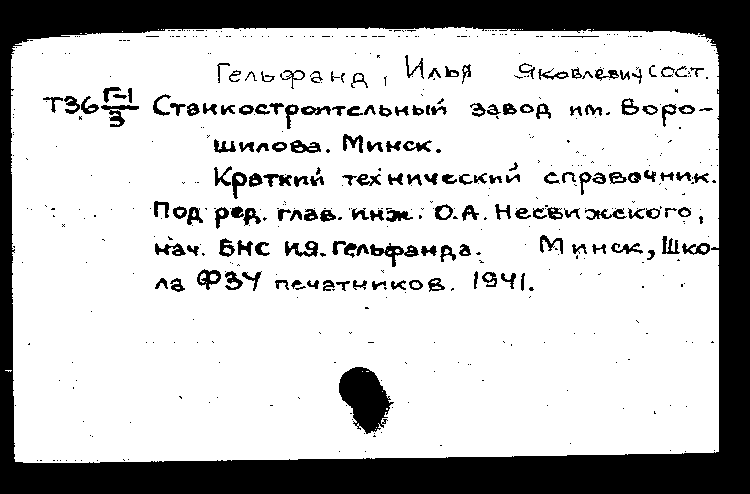 Гельфанд, Илья Яковлевич сост.
Т36 Г-1/3 Станкостроительный завод им. Воро-
шилова. Минск.
Краткий технический справочник.
Под ред. глав. инж. О.А. Несвижского,
нач. БНС И.Я. Гельфанда. Минск, Шко-
ла ФЗУ печатников. 1941.